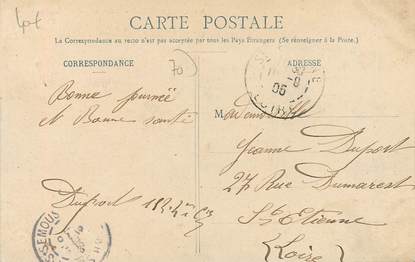 40f
CARTE POSTALE
La Correspondance au recto n'est pas acceptée par tous les Pays Etrangers (Se renseigner à la Poste.)
CORRESPONDANCE
70
ADRESSE
Bonne journée
et Bonne santé
Duport
M ademoiselle
Jeanne Duport
27 Rue Dumarest
St Etienne
(Loire)
05